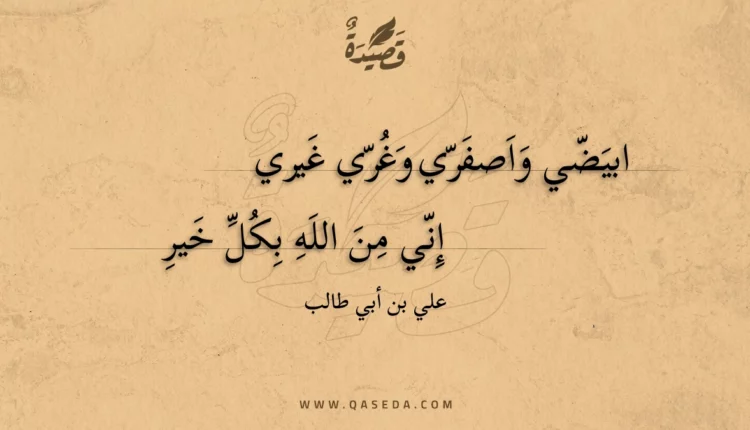 قَصِيدَةٌ
ابيَضّي وَاَصفَرّي وَغُرّي غَيري
إِنّي مِنَ اللَهِ بِكُلِّ خَيرِ
علي بن أبي طالب
WWW.QASEDA.COM